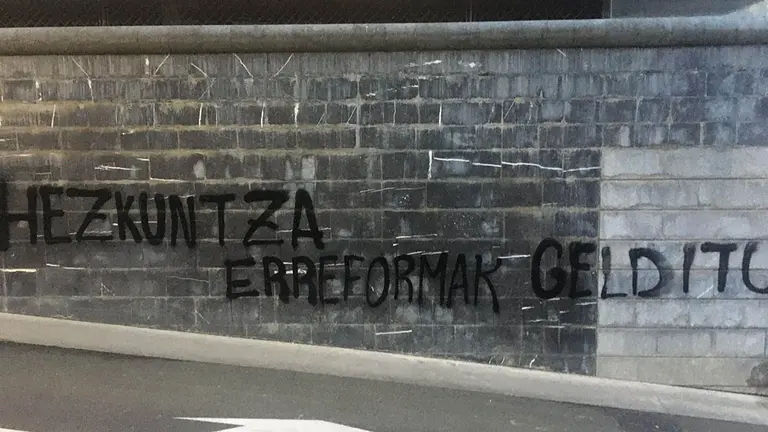 HEZKUNTZA
ERREFORMAK GELDITU